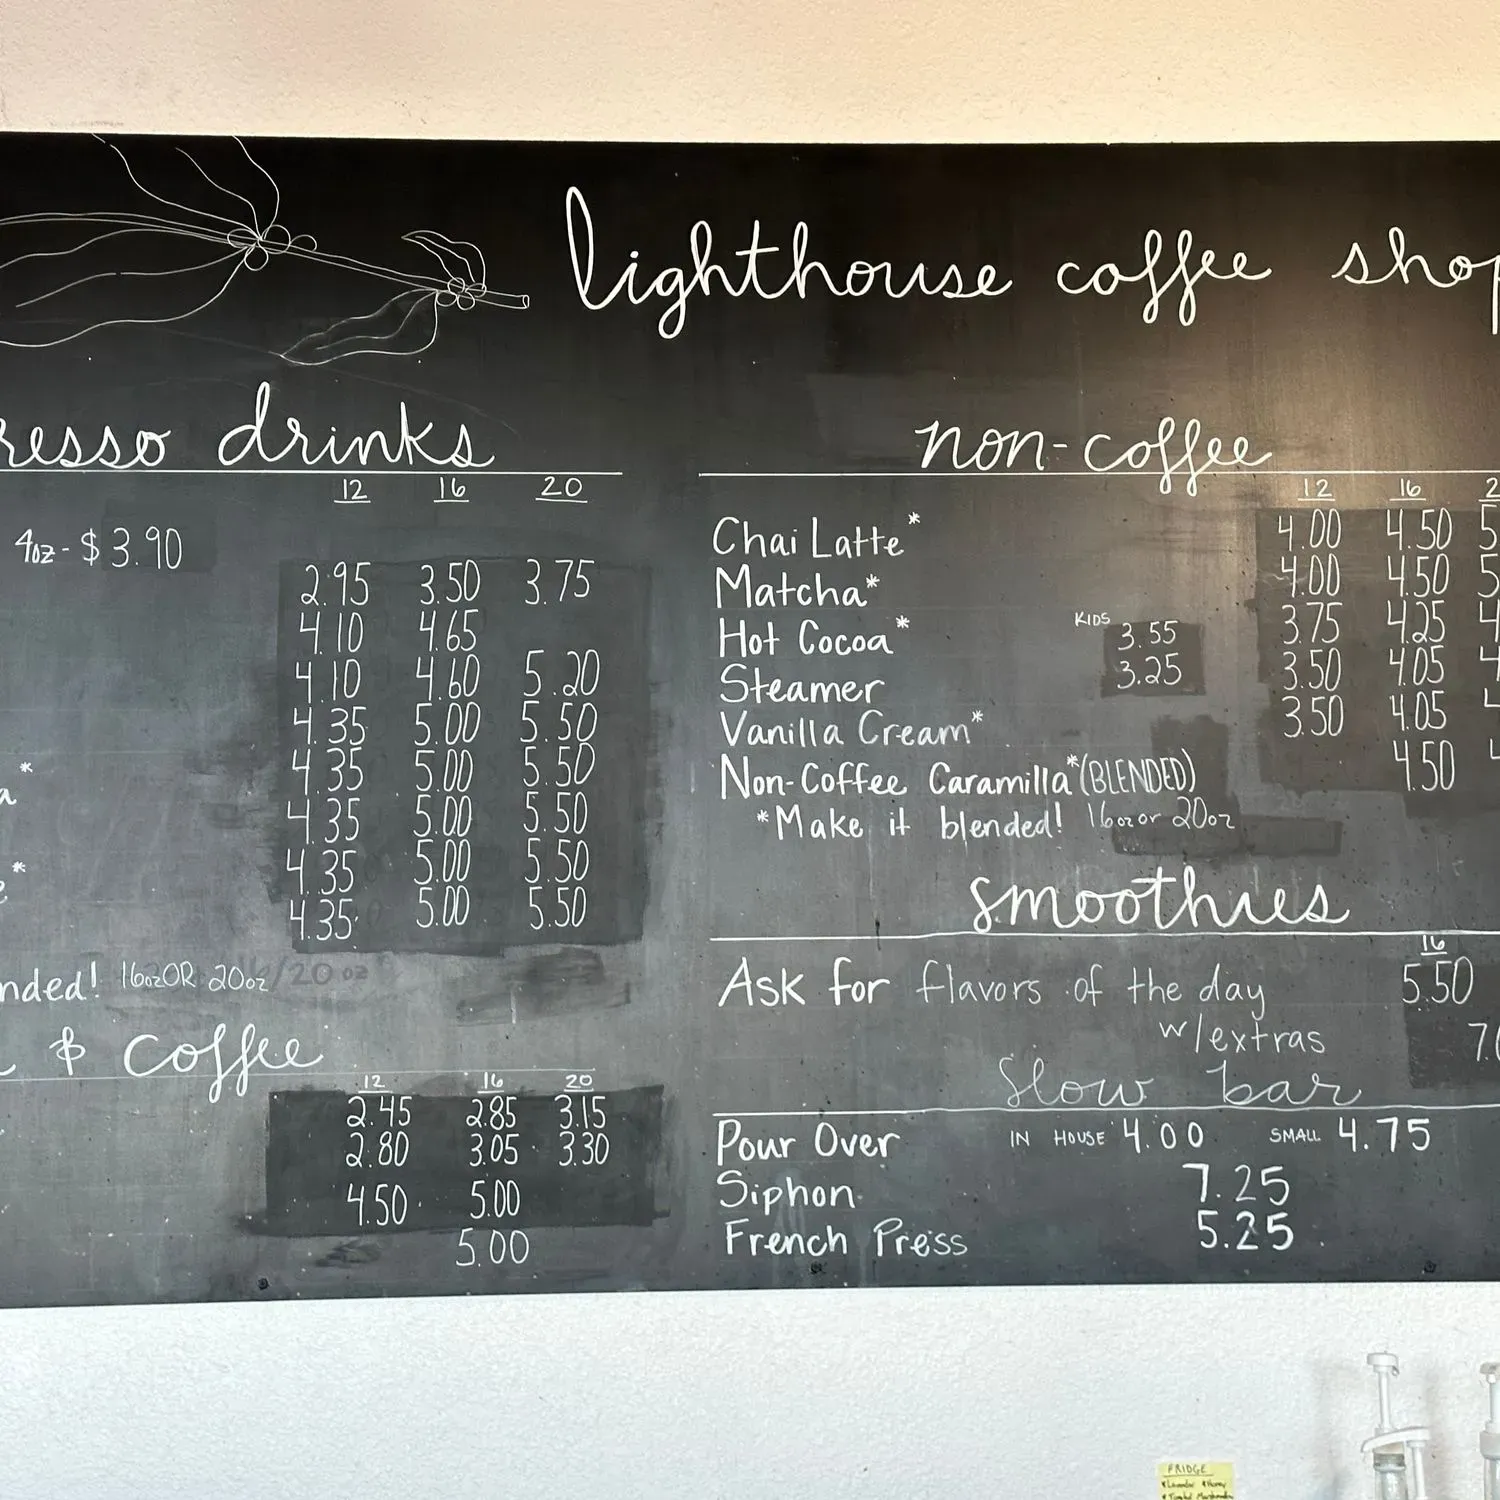 lighthouse coffee shop
resso drinks
12 16 20
4oz - $3.90
2.95 3.50 3.75
4.10 4.65
4.10 4.60 5.20
4.35 5.00 5.50
4.35 5.00 5.50
4.35 5.00 5.50
4.35 5.00 5.50
4.35 5.00 5.50
nded! 16oz OR 20oz /20 oz
& coffee
12 16 20
2.45 2.85 3.15
2.80 3.05 3.30
4.50 5.00
5.00
non-coffee
12 16 2
Chai Latte* 4.00 4.50 5
Matcha* 4.00 4.50 5
Hot Cocoa* KIDS 3.55 3.75 4.25 4
Steamer 3.25 3.50 4.05 4
Vanilla Cream* 3.50 4.05 4
Non-Coffee Caramilla* (BLENDED) 4.50 4
*Make it blended! 16oz or 20oz
smoothies
16
Ask for flavors of the day 5.50
w/extras 7.0
Slow bar
Pour Over IN HOUSE 4.00 SMALL 4.75
Siphon 7.25
French Press 5.25
FRIDGE
*Lavender *Honey
*Toasted Marshmallow